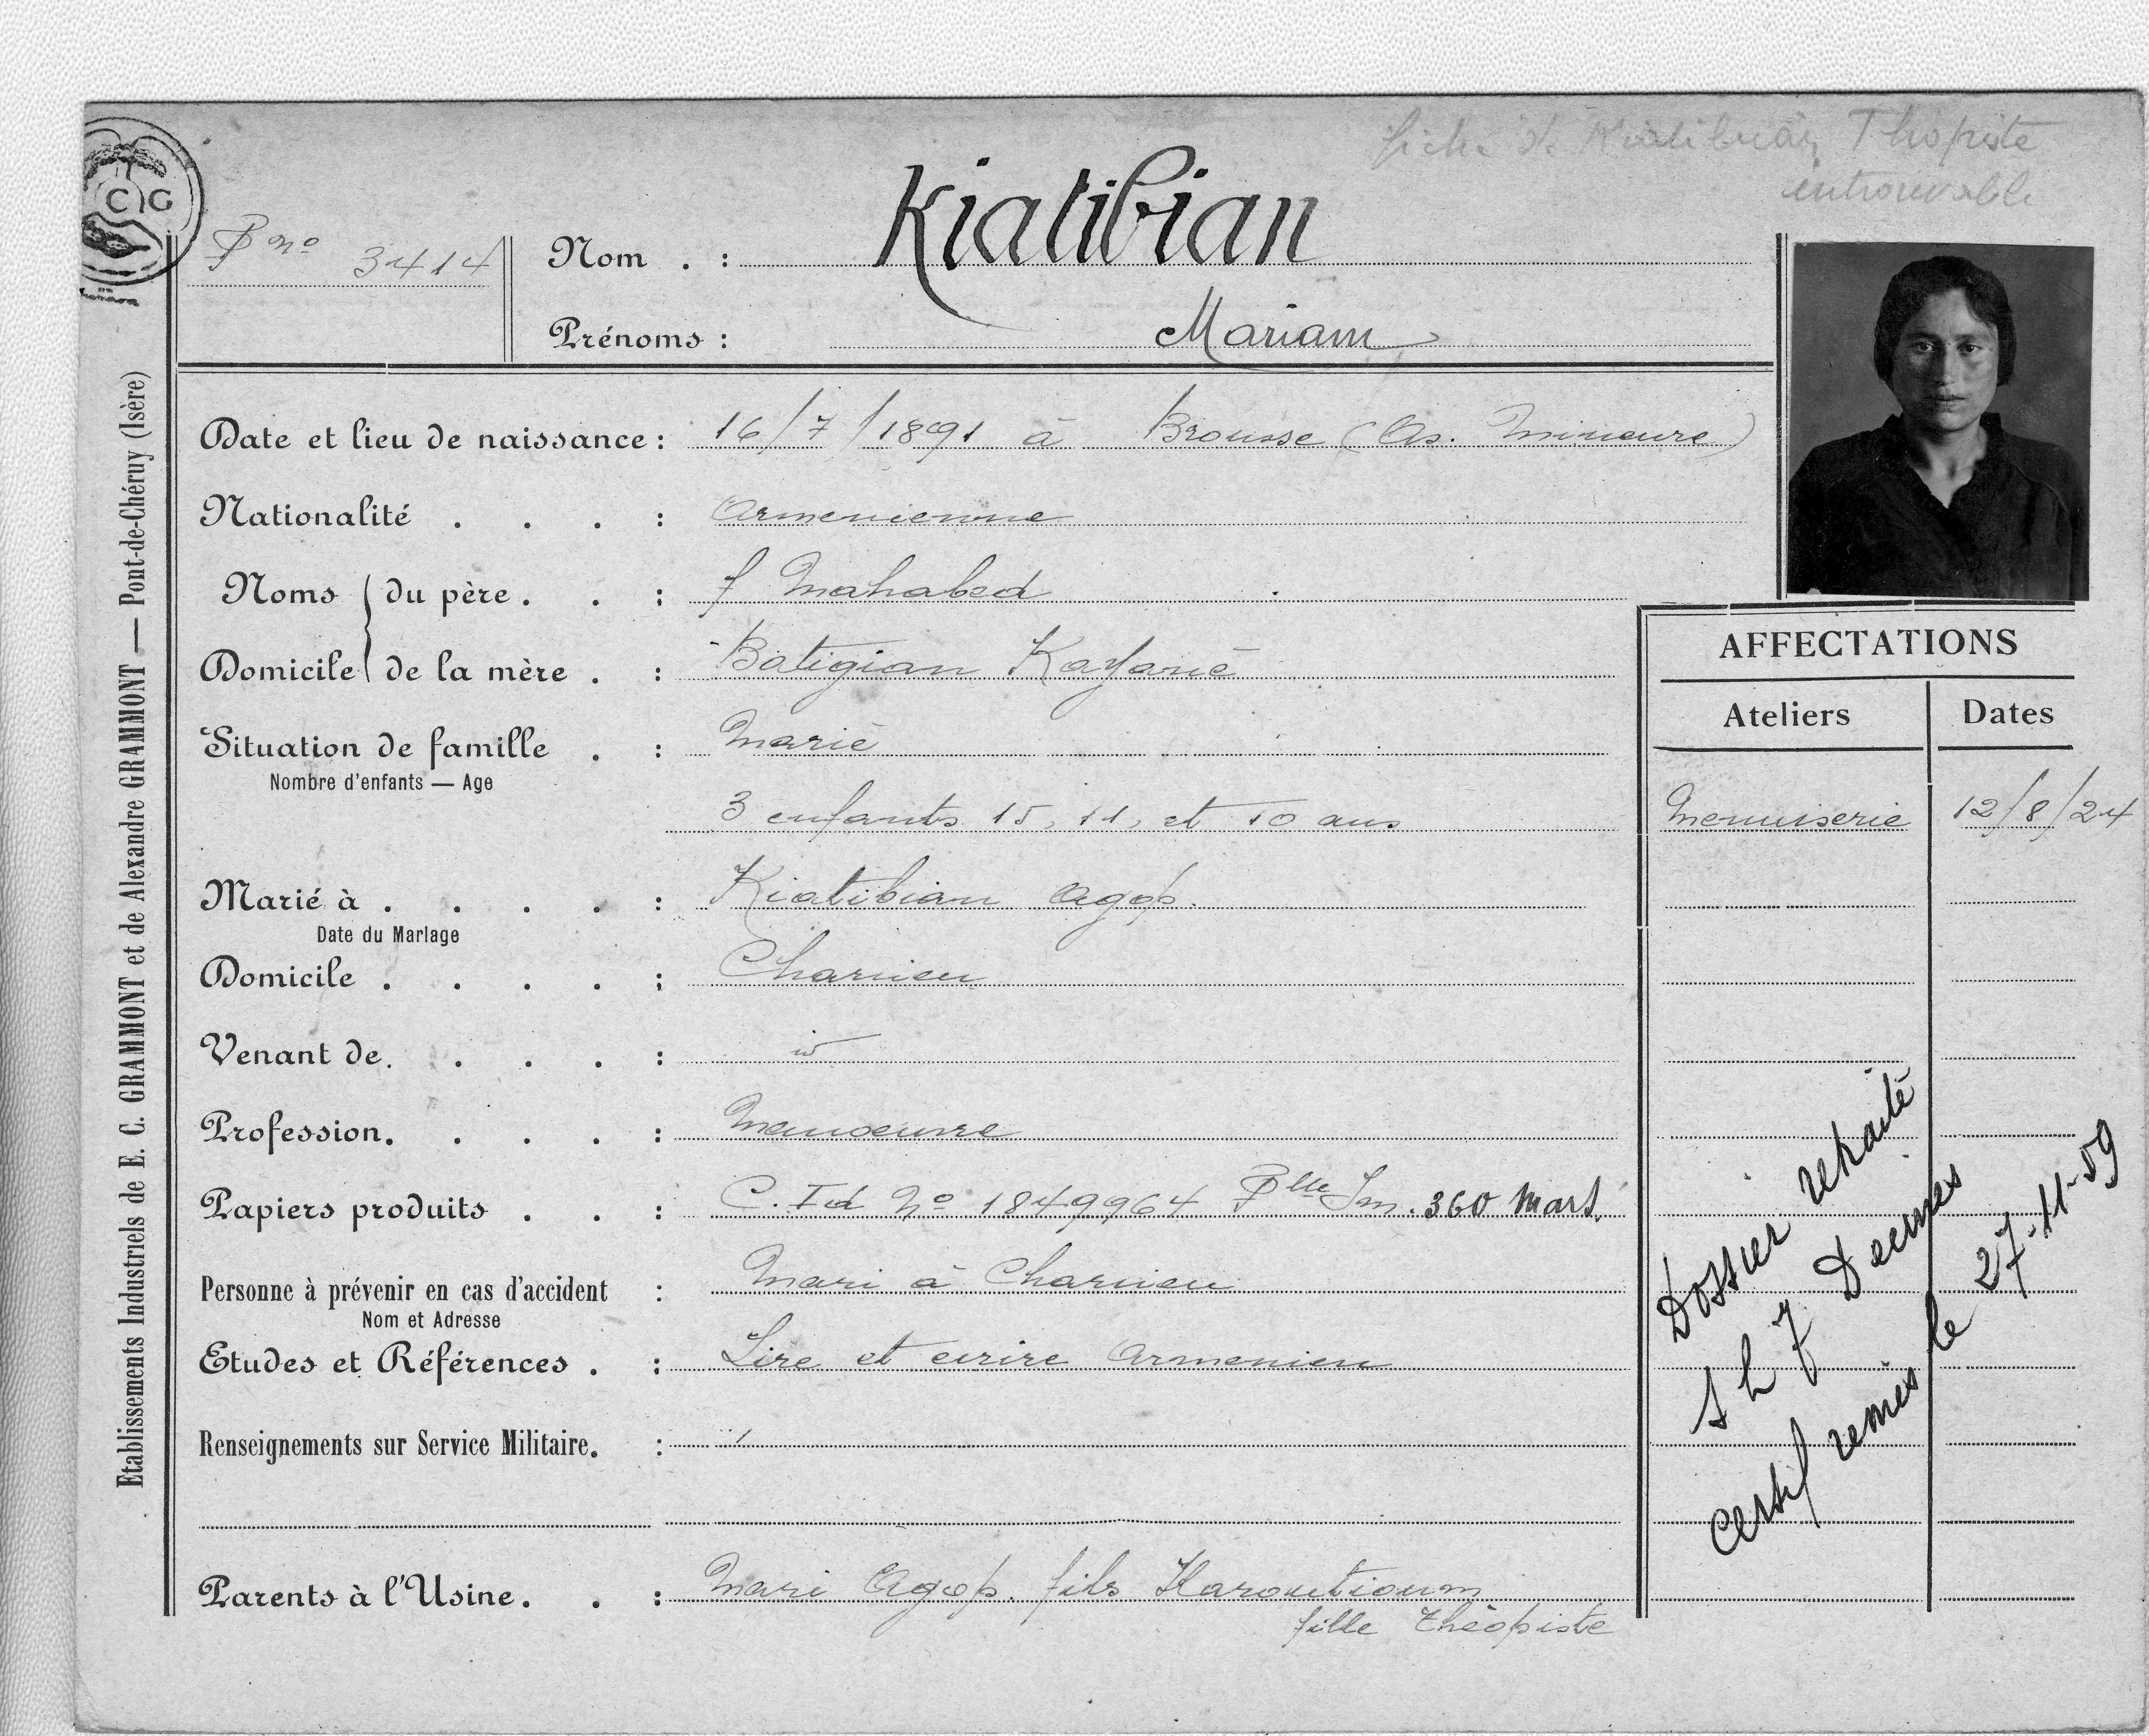 fiche de Kiatibian Thopiste
introuvable
C G
P no 3414
Nom . : Kiatibian
Prénoms : Mariam
Date et lieu de naissance : 16/7/1891 à Brousse (As. Mineure)
Nationalité . . . : Armenienne
Noms du père . . : f Mahabed
Domicile de la mère . : Batigian Kayanē
Situation de famille . : Marié
Nombre d'enfants — Age
3 enfants 15, 11, et 10 ans
Marié à . . . . : Kiatibian Agop.
Date du Mariage
Domicile . . . . : Charvieu
Venant de. . . . :
Profession. . . . : Manoeuvre
Papiers produits . . : C. Id No 1849964 Plle Im. 360 Mars.
Personne à prévenir en cas d'accident : Mari à Charvieu
Nom et Adresse
Etudes et Références . : Lire et ecrire Armenien
Renseignements sur Service Militaire. :
Parents à l'Usine. . : Mari Agop. fils Haroutioum
fille théopiste
AFFECTATIONS
Ateliers Dates
Menuiserie 12/8/24
Dossier retraite
S L 7 Decines
Certif remis le 27-11-59
Etablissements Industriels de E. C. GRAMMONT et de Alexandre GRAMMONT — Pont-de-Chéruy (Isère)